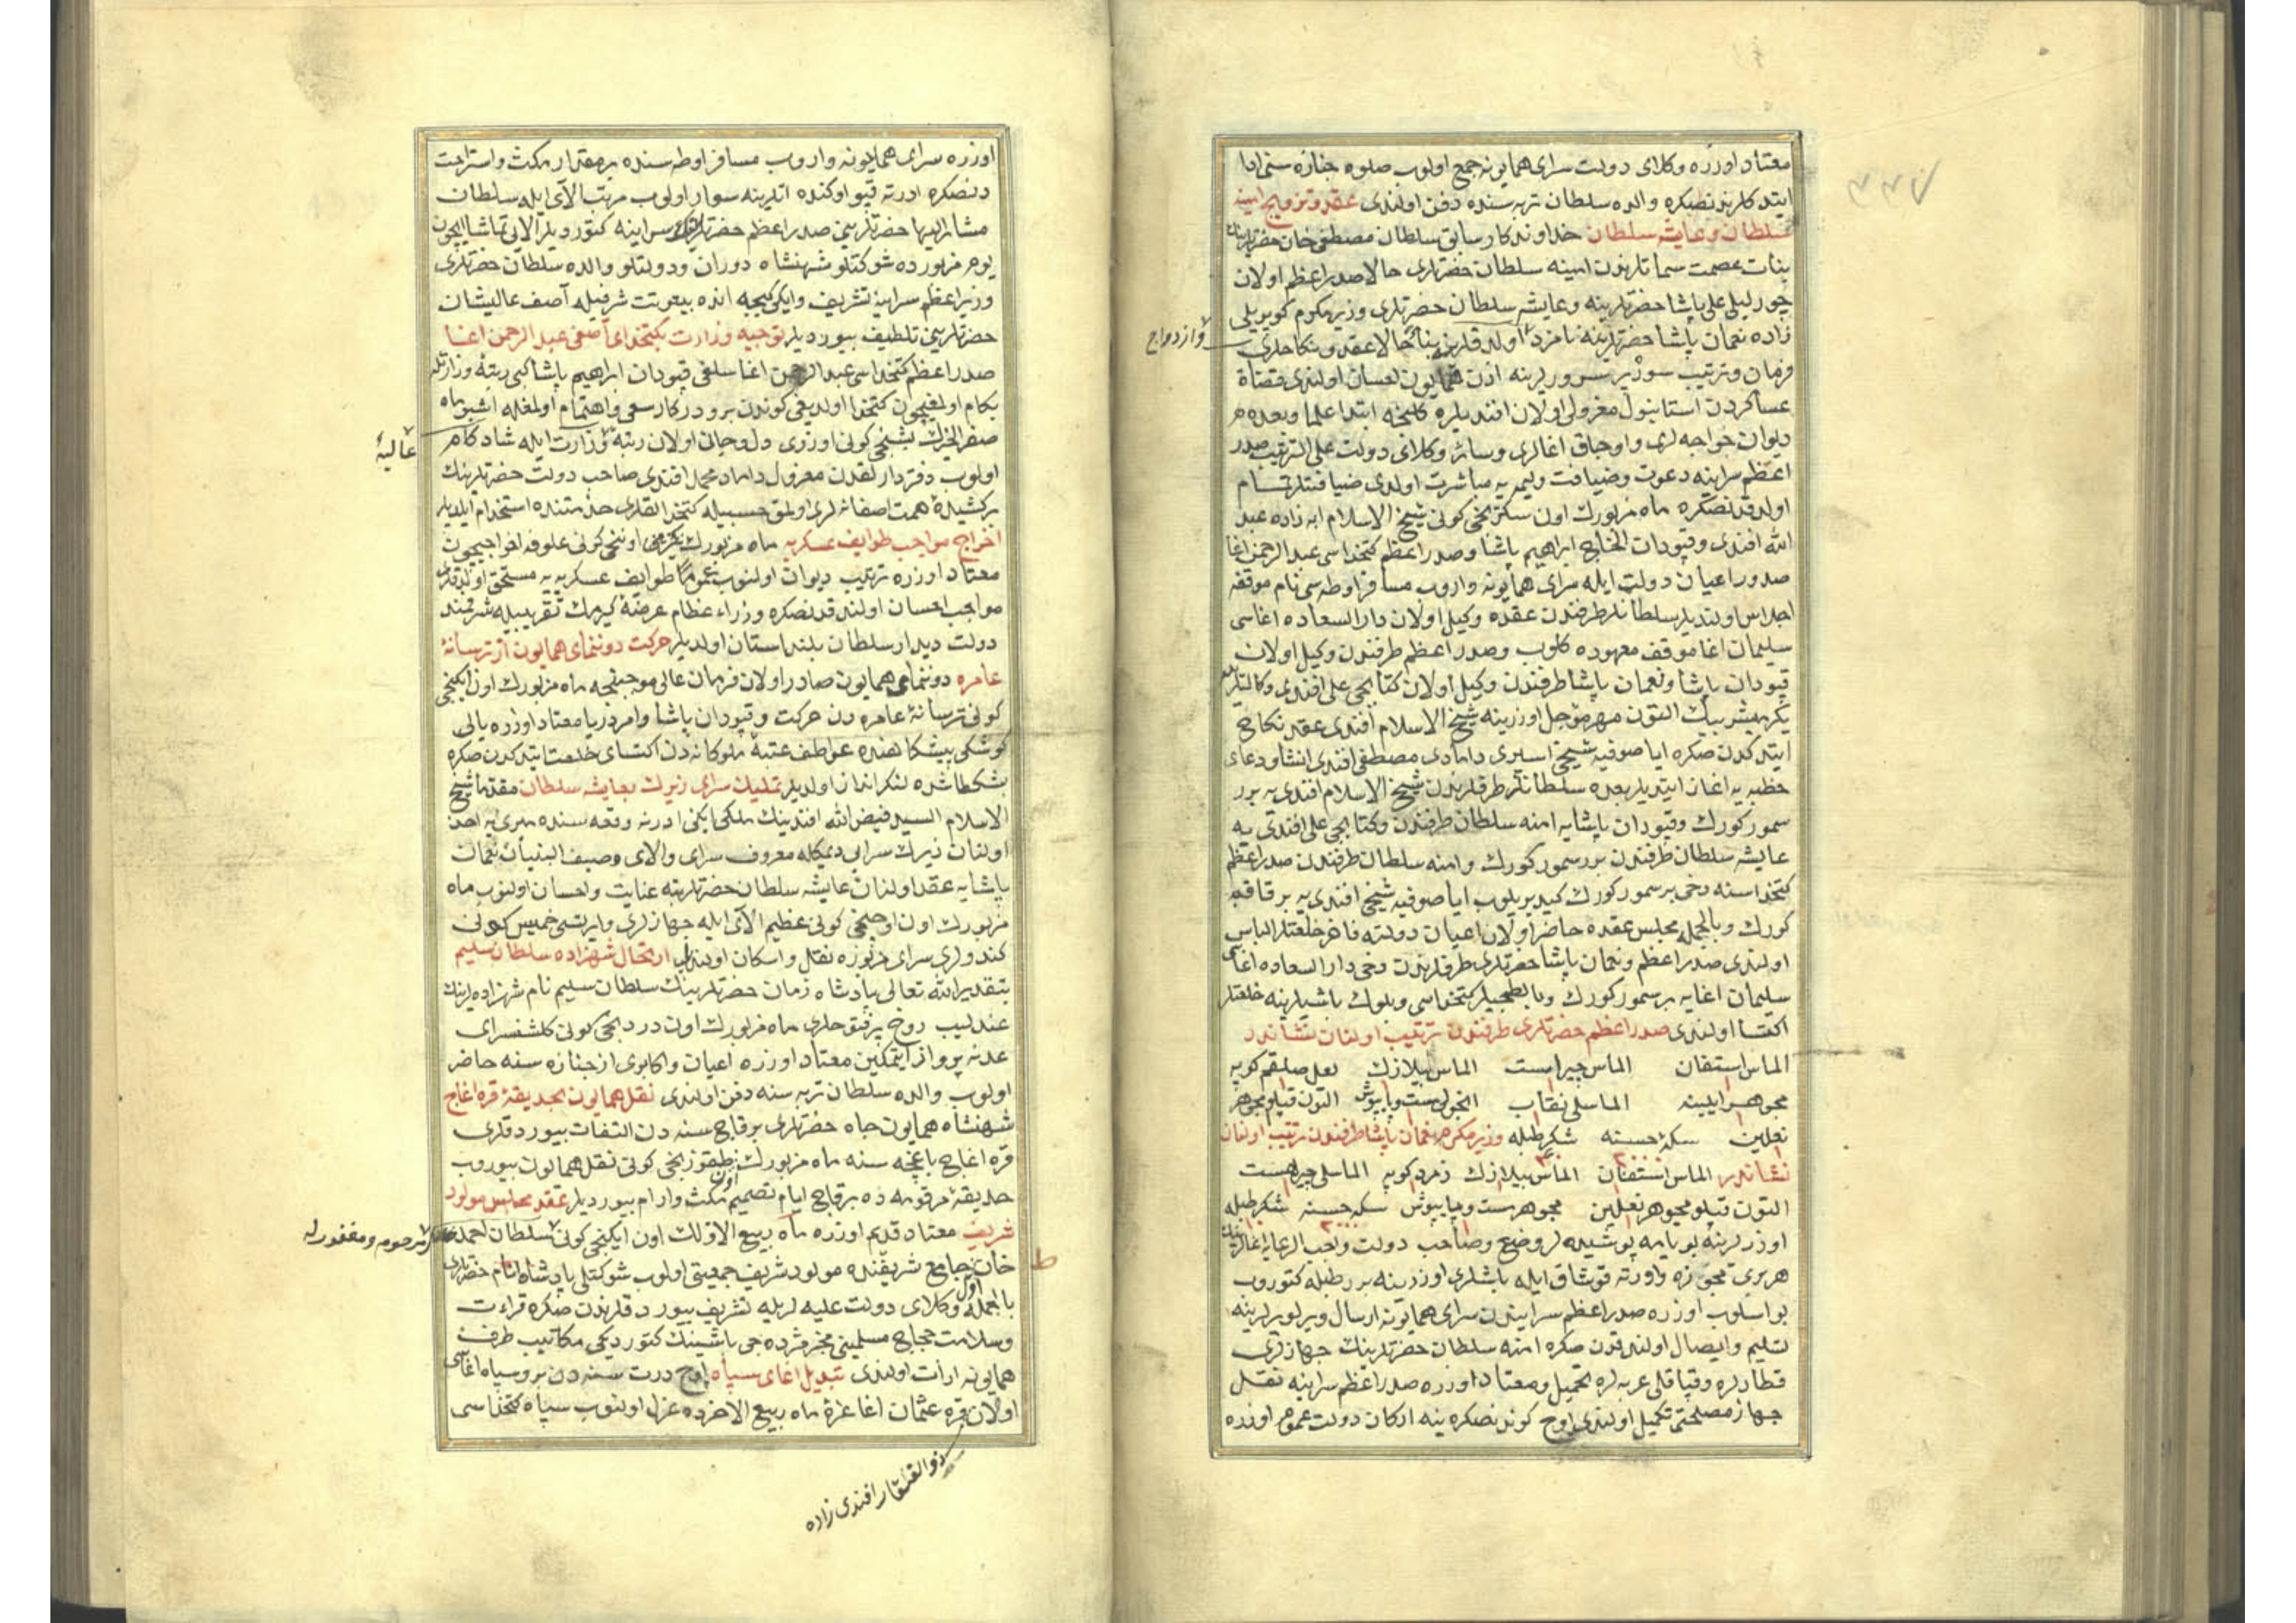 معتاد اوزره وكلاى دولت سراى همايونه جمع اولوب صلوه جنازه سنى ادا
ايتدكلرندنصكره والده سلطان تربه سنده دفن اولندى عقد وتزويج امينه
سلطان وعايشه سلطان خداوندكار سابق سلطان مصطفى خان حضرتلرينك
بنات عصمت سماتلرندن امينه سلطان حضرتلرى حالا صدر اعظم اولان
چورليلى على پاشا حضرتلرينه وعايشه سلطان حضرتلرى وزير مكرم كوپريلى
زاده نعمان پاشا حضرتلرينه نامزد اولدقلرينه بناءً حالا عقد ونكاحلرى
وازدواج
فرمان وترتيب سور پر سرورلرينه اذن همايون احسان اولندى قضاة
عساكردن استانبول معزولى اولان افنديلره كلنجه ابتدا علما وبعده
ديوان خواجه لرى واوجاق اغالرى وسائر وكلاى دولت على الترتيب صدر
اعظم سراينه دعوت وضيافت وليمه يه مباشرت اولندى ضيافتلر تمام
اولدقدنصكره ماه مزبورك اون سكزنجى كونى شيخ الاسلام ابه زاده عبد
الله افندى وقپودان الحاج ابراهيم پاشا وصدر اعظم كتخداسى عبد الرحمن اغا
صدور اعيان دولت ايله سراى همايونه واروب مسافر اوطه سى نام موقفه
اجلاس اولنديلر سلطانلر طرفندن عقده وكيل اولان دار السعاده اغاسى
سليمان اغا موقف معهوده كلوب وصدر اعظم طرفندن وكيل اولان
قپودان پاشا ونعمان پاشا طرفندن وكيل اولان كتابجى على افندى وكالتلريله
يكرميشر بيك التون مهر مؤجل اوزرينه شيخ الاسلام افندى عقد نكاح
ايتدكدن صكره ايا صوفيه شيخى اسپرى دامادى مصطفى افندى انشاد دعاى
خطبه يه اغاز ايتديلر بعده سلطانلر طرفلرندن شيخ الاسلام افندى يه برر
سمور كورك وقپودان پاشايه امنه سلطان طرفندن وكتابجى على افندى يه
عايشه سلطان طرفندن برر سمور كورك وامنه سلطان طرفندن صدر اعظم
كتخداسنه دخى بر سمور كورك كيديريلوب ايا صوفيه شيخى افندى يه بر قاقم
كورك وبالجمله مجلس عقده حاضر اولان اعيان دولته فاخر خلعتلر الباس
اولندى صدر اعظم ونعمان پاشا حضرتلرى طرفلرندن دخى دار السعاده اغاسى
سليمان اغايه بر سمور كورك وبالطه جيلر كتخداسى وبلوك باشيلرينه خلعتلر
اكتسا اولندى صدر اعظم حضرتلرى طرفندن ترتيب اولنان نشاندر
الماس استفان الماس چيراست الماس بيلازك لعل صالقم كوپه
مجوهر ايلينه الماسلى نقاب انجولى مست وپاپوش التون قپلو مجوهر
نعلين سكه حسنه شكر طبله وزير مكرم نعمان پاشا طرفندن ترتيب اولنان
نشاندر الماس استفان الماس بيلازك زمرد كوپه الماسلى چيراست
التون قپلو مجوهر نعلين مجوهر مست وپاپوش سكه حسنه شكر طبله
اوزرلرينه بويامه پوشيده لر وضع وصاحب دولت واجب الرعايه اغالرينك
هر برى مجوزه واورته قوشاق ايله باشلرى اوزرينه برر طبله كتوروب
بو اسلوب اوزره صدر اعظم سرايندن سراى همايونه ارسال ويرلو يرلرينه
تسليم وايصال اولندقدن صكره امنه سلطان حضرتلرينك جهازلرى
قطارلره وقپاقلى عربه لره تحميل ومعتاد اوزره صدر اعظم سراينه نقل
جهاز مصلحتى تكميل اولندى اوچ كوندنصكره ينه اركان دولت عموم اوزره
اوزره سراى همايونه واروب مسافر اوطه سنده بر مقدار مكث واستراحت
دنصكره اورته قپو اوكنده اتلرينه سوار اولوب مرتب الاى ايله سلطان
مشار اليها حضرتلرينى صدر اعظم حضرتلرينك سراينه كتورديلر الايى تماشا ايچون
يوم مزبورده شوكتلو شهنشاه دوران ودولتلو والده سلطان حضرتلرى
وزير اعظم سراينه تشريف وايكى كيجه انده بيتوتت شرفيله آصف عاليشان
حضرتلرينى تلطيف بيورديلر توجيه وزارت بكتخداى آصفى عبد الرحمن اغا
صدر اعظم كتخداسى عبد الرحمن اغا سلفى قپودان ابراهيم پاشا كبى رتبه وزارتله
بكام اولمغيچون كتخدا اولديغى كوندن برو دركار سعى واهتمام اولمغله اشبو ماه
صفر الخيرك بشنجى كونى ارزوى دل وجانى اولان رتبه وزارت ايله شادكام
عاليهٔ
اولوب دفتردارلقدن معزول داماد محمد افندى صاحب دولت حضرتلرينك
بركشيدهٔ همت اصفانه لرى اولمق حسبيله كتخدالقلرى خدمتنده استخدام ايلديلر
اخراج مواجب طوايف عسكريه ماه مزبورك يكرمى اوننجى كونى علوفه اخراجيچون
معتاد اوزره ترتيب ديوان اولنوب عموماً طوايف عسكريه يه مستحق اولدقلرى
مواجب احسان اولندقدنصكره وزراء عظام عرضه كيرمك تقريبيله شرفمند
دولت ديدار سلطان بلند استان اولديلر حركت دوننماى همايون از ترسانهٔ
عامره دوننماى همايون صادر اولان فرمان عالى موجبنجه ماه مزبورك اون ايكنجى
كونى ترسانهٔ عامره دن حركت وقپودان پاشا وامرا دريا معتاد اوزره يالى
كوشكى پيشكاهنده عواطف عتبهٔ ملوكانه دن اكتساى خلعت ايتدكدن صكره
بشكطاشده لنكرانداز اولديلر تمليك سراى زيرك بعايشه سلطان مقدما شيخ
الاسلام السيد فيض الله افندينك ملكى ايكن ادرنه وقعه سنده ميرى يه اخذ
اولنان زيرك سرايى ديمكله معروف سراى والاى وصيف البنيان نعمان
پاشايه عقد اولنان عايشه سلطان حضرتلرينه عنايت واحسان اولنوب ماه
مزبورك اون اوچنجى كونى عظيم الاى ايله جهازلرى وايرتسى خميس كونى
كندولرى سراى مزبوره نقل واسكان اولنديلر ارتحال شهزاده سلطان سليم
بتقدير الله تعالى پادشاه زمان حضرتلرينك سلطان سليم نام شهزاده لرينك
عندليب روح پرفتوحلرى ماه مزبورك اون دردنجى كونى كلشنسراى
عدنه پرواز ايتمكين معتاد اوزره اعيان واكابر جنازه سنه حاضر
اولوب والده سلطان تربه سنه دفن اولندى نقل همايون بحديقهٔ قره اغاج
شهنشاه همايون جاه حضرتلرى بر قاچ سنه دن التفات بيوردقلرى
قره اغاج باغچه سنه ماه مزبورك اون طقوزنجى كونى نقل همايون بيوروب
حديقهٔ مرقومه ده بر قاچ ايام تصميم مكث وارام بيورديلر عقد مجلس مولود
شريف معتاد قديم اوزره ماه ربيع الاولك اون ايكنجى كونى سلطان احمد
مرحوم ومغفور له
خان جامع شريفنده مولود شريف جمعيتى اولوب شوكتلى پادشاه انام حضرتلرى
بالجمله وكلاى دولت عليه لريله تشريف بيوردقلرندن صكره قراءت
وسلامت حجاج مسلمينى مخبر مژده جى باشينك كتورديكى مكاتيب طرف
همايونه ارائت اولندى تبديل اغاى سپاه اوچ درت سنه دن برو سپاه اغاسى
اولان قره عثمان اغا غرهٔ ماه ربيع الاخرده عزل اولنوب سپاه كتخداسى
ذو الفقار افندى زاده